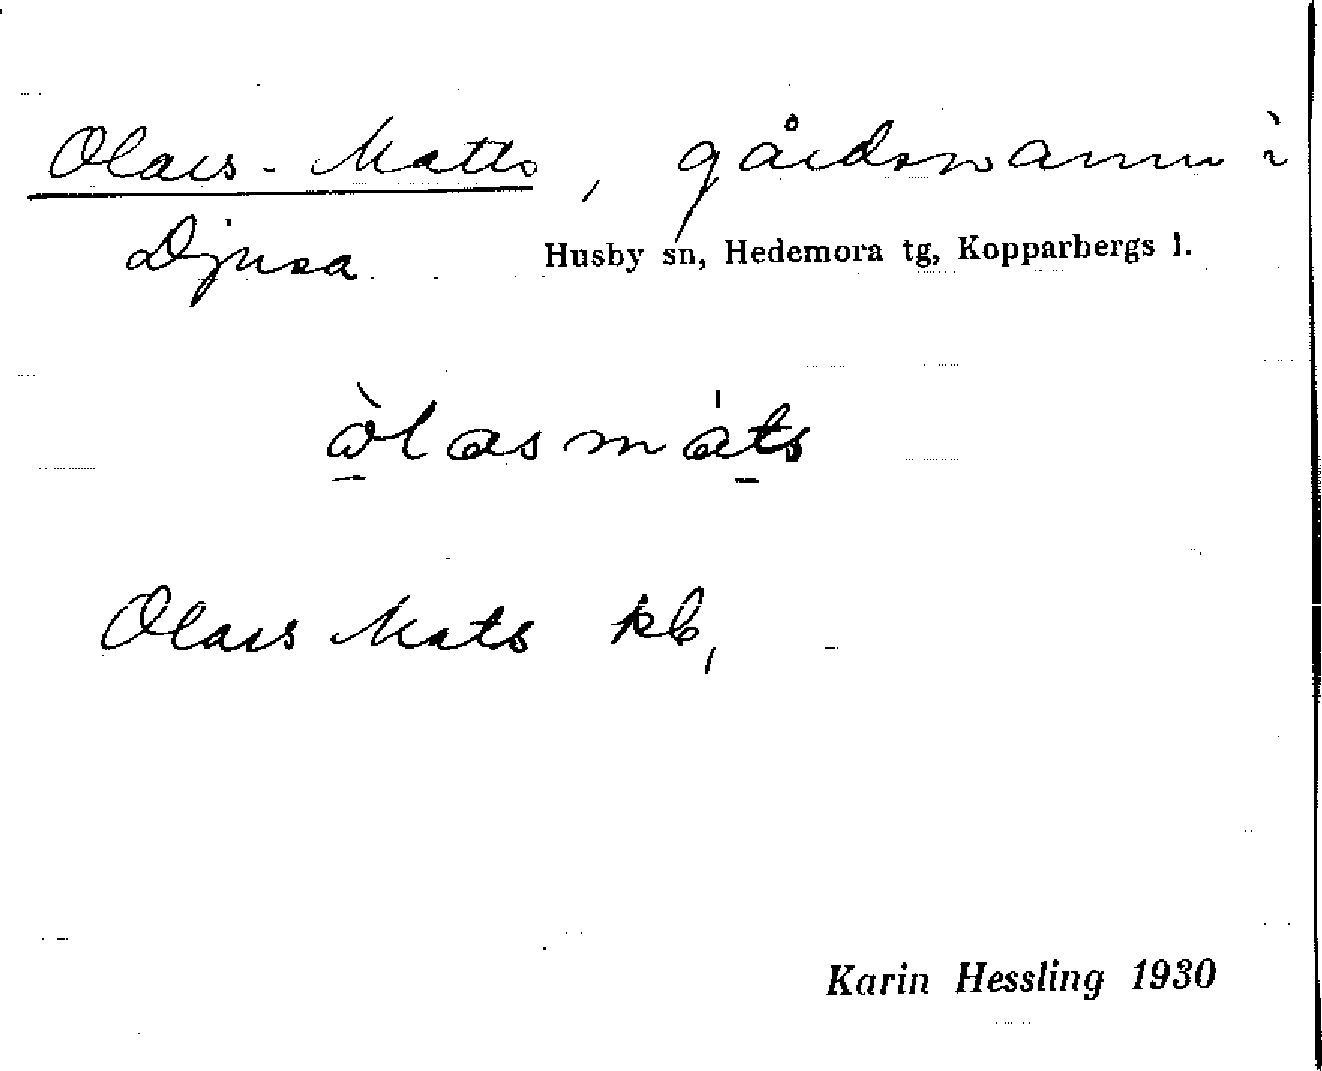 Olars-Matts, gårdsnamn i
Djusa Husby sn, Hedemora tg, Kopparbergs l.
òlasmáts
Olars Mats kb,
Karin Hessling 1930